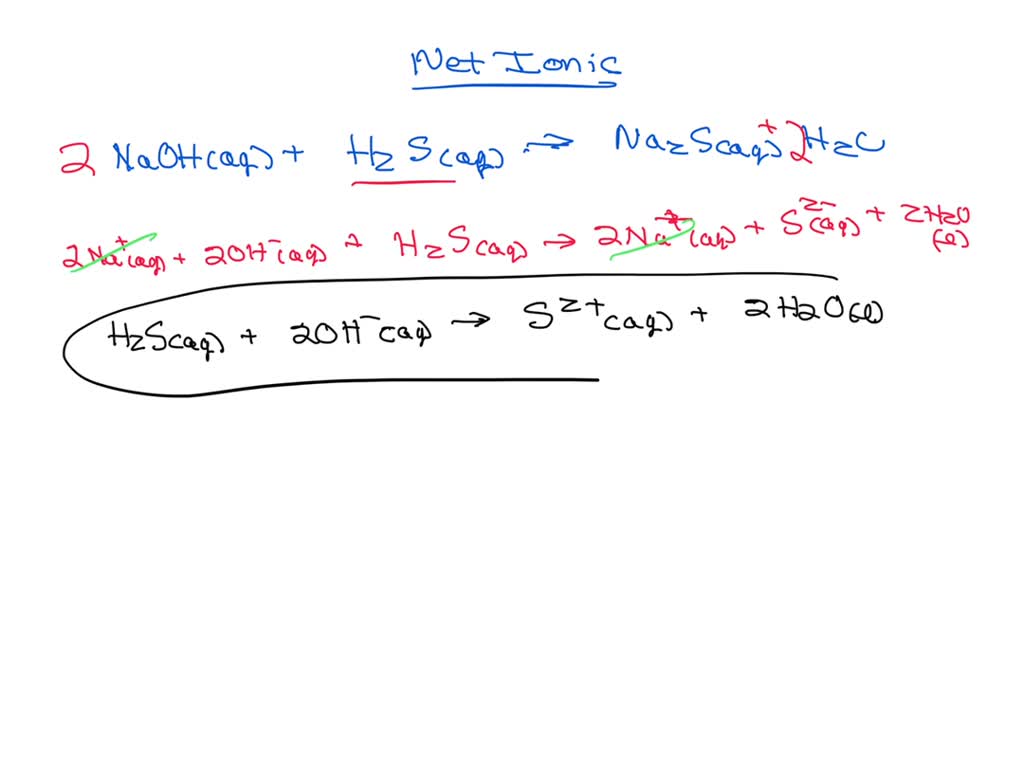 Net Ionic
2 NaOH(aq) + H2S(aq) → Na2S(aq) + 2H2O
2Na+(aq) + 2OH-(aq) + H2S(aq) → 2Na+(aq) + S2-(aq) + 2H2O(l)
H2S(aq) + 2OH-(aq) → S2+(aq) + 2H2O(l)